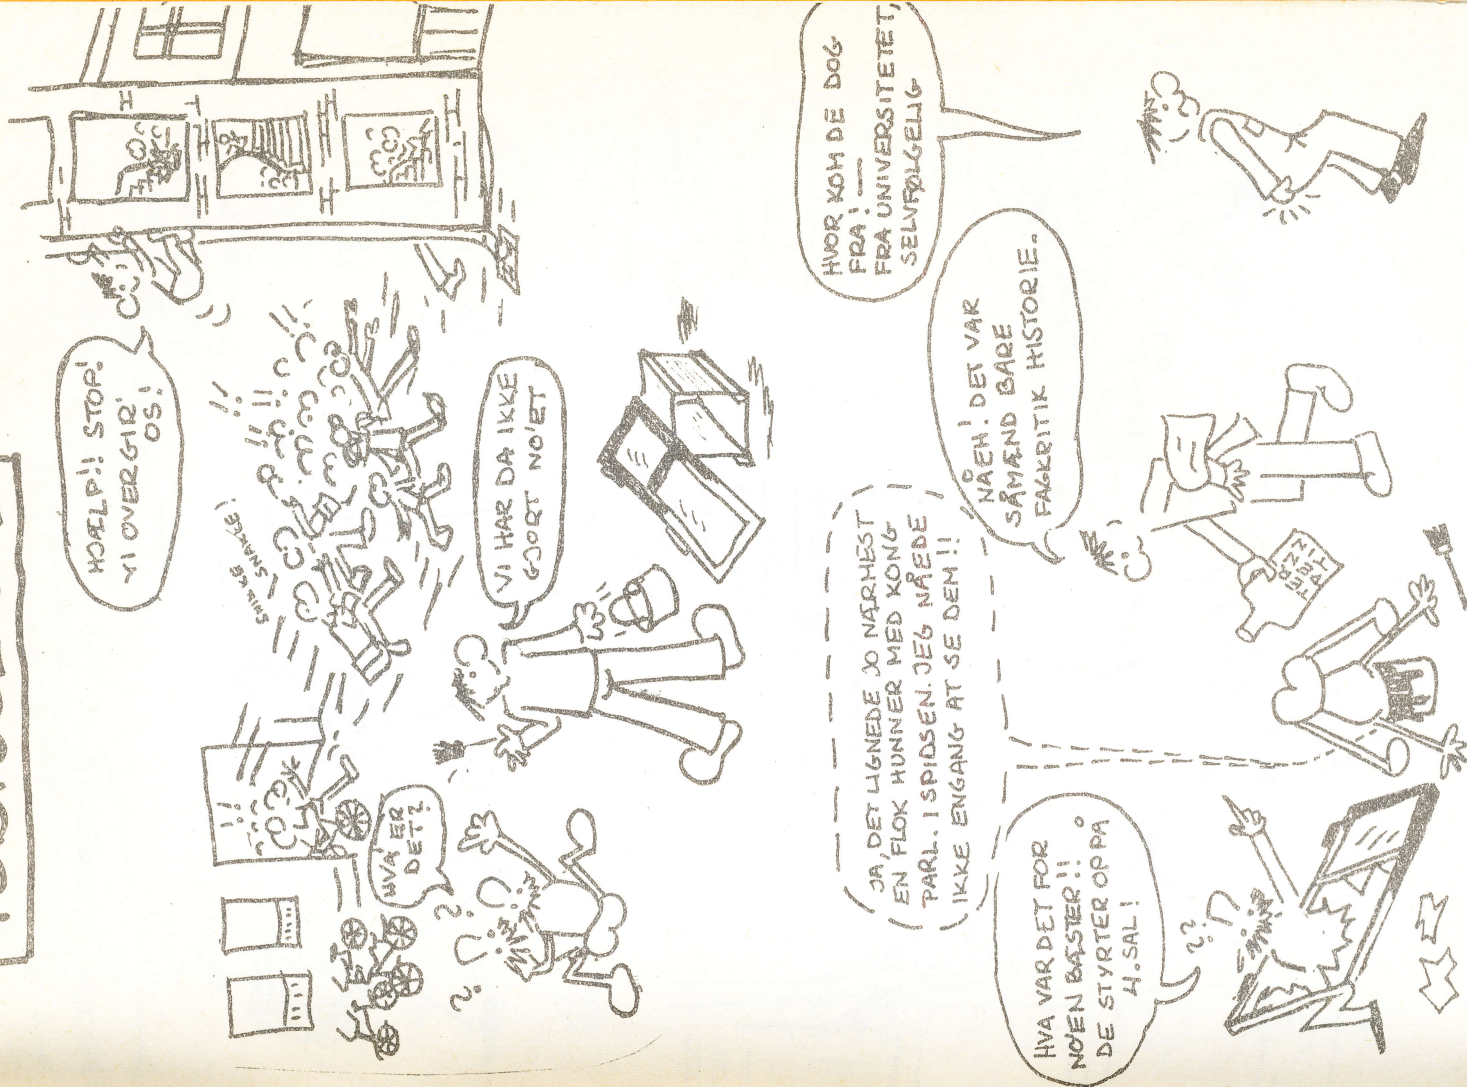 HJÆLP!! STOP!
VI OVERGIR'
OS!
SNIKKE
SNAKKE!
HVA' ER
DET?
VI HAR DA IKKE
GJORT NO'ET
HVA VAR DET FOR
NO'EN BÆSTER!!
DE STYRTER OP PÅ
4. SAL!
JA, DET LIGNEDE JO NÆRMEST
EN FLOK HUNNER MED KONG
PARL. I SPIDSEN. JEG NÅEDE
IKKE ENGANG AT SE DEM!!
NÅEH! DET VAR
SÅMÆND BARE
FAGKRITIK HISTORIE.
HVOR KOM DE DOG
FRA! —
FRA UNIVERSITETET,
SELVFØLGELIG